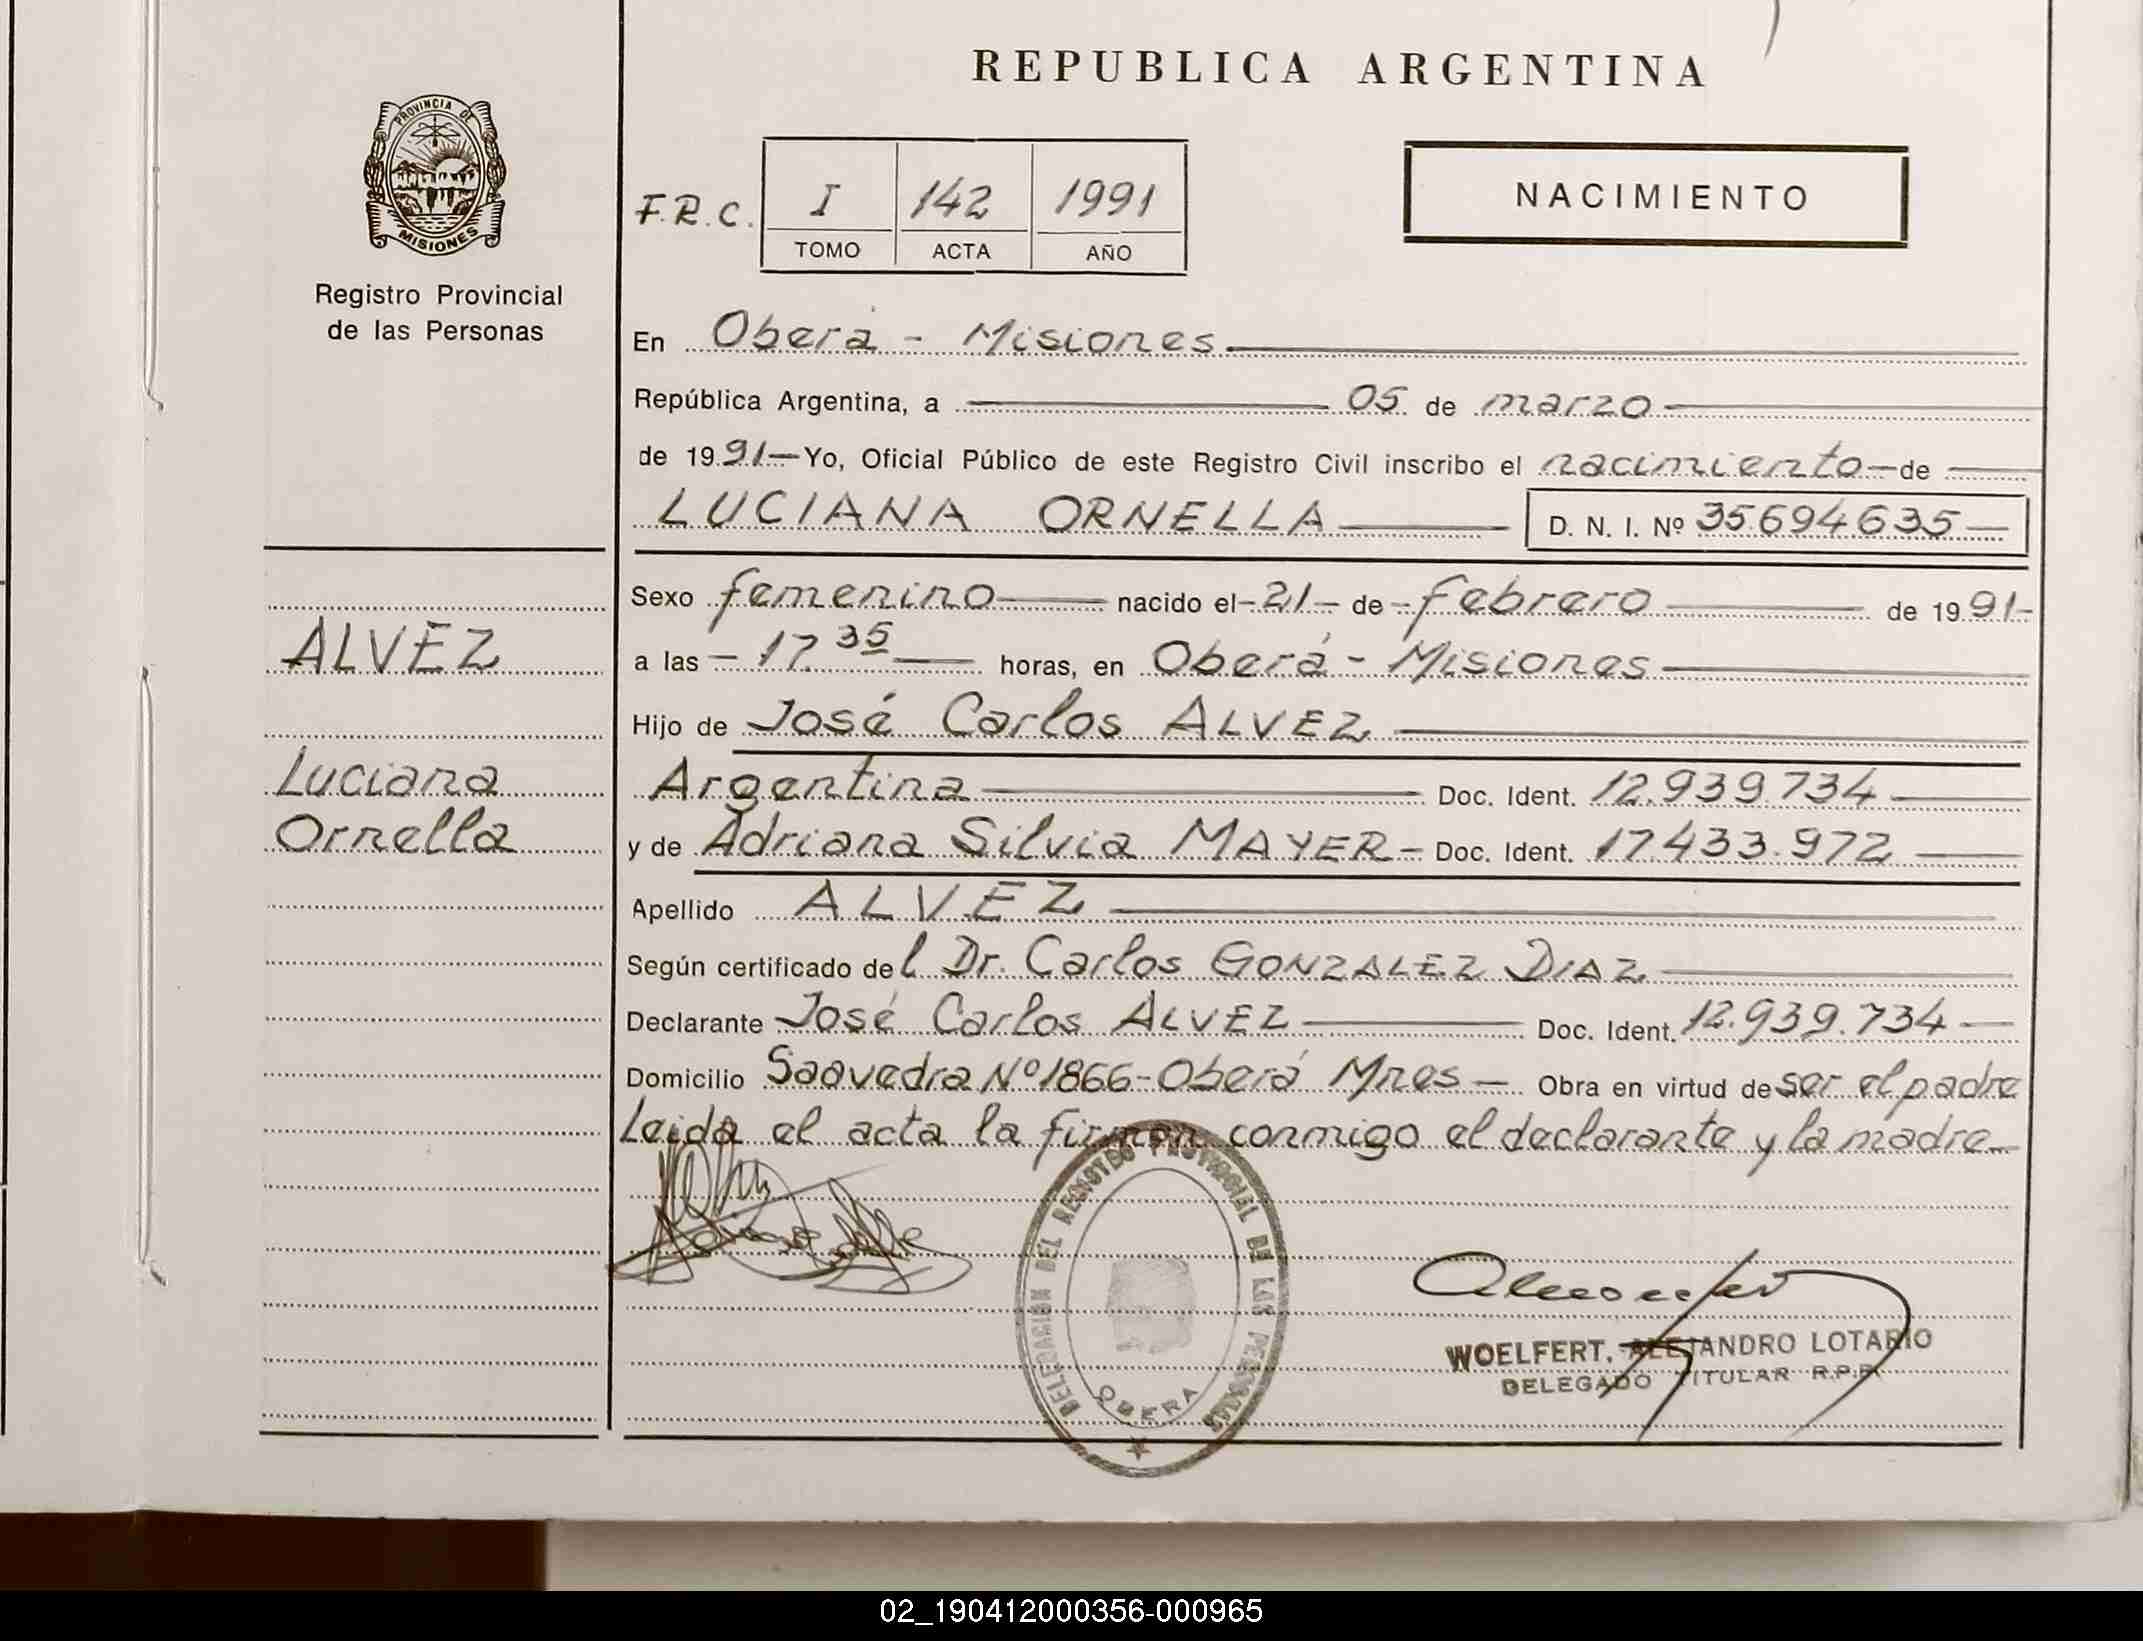 REPUBLICA ARGENTINA
PROVINCIA DE
MISIONES
Registro Provincial
de las Personas
F.R.C. I 142 1991
TOMO ACTA AÑO
NACIMIENTO
En Oberá - Misiones
República Argentina, a 05 de marzo
de 1991 - Yo, Oficial Público de este Registro Civil inscribo el nacimiento de
LUCIANA ORNELLA D. N. I. Nº 35.694.635
ALVEZ
Luciana
Ornella
Sexo femenino nacido el - 21 - de - febrero de 1991 -
a las - 17.35 horas, en Oberá - Misiones
Hijo de José Carlos ALVEZ
Argentina Doc. Ident. 12.939.734
y de Adriana Silvia MAYER - Doc. Ident. 17.433.972
Apellido ALVEZ
Según certificado del Dr. Carlos GONZALEZ DIAZ
Declarante José Carlos ALVEZ Doc. Ident. 12.939.734
Domicilio Saavedra Nº 1866 - Oberá Mnes - Obra en virtud de ser el padre
Leida el acta la firman conmigo el declarante y la madre
DELEGACION DEL REGISTRO PROVINCIAL DE LAS PERSONAS
OBERA
WOELFERT, ALEJANDRO LOTARIO
DELEGADO TITULAR R.P.P.
02_190412000356-000965